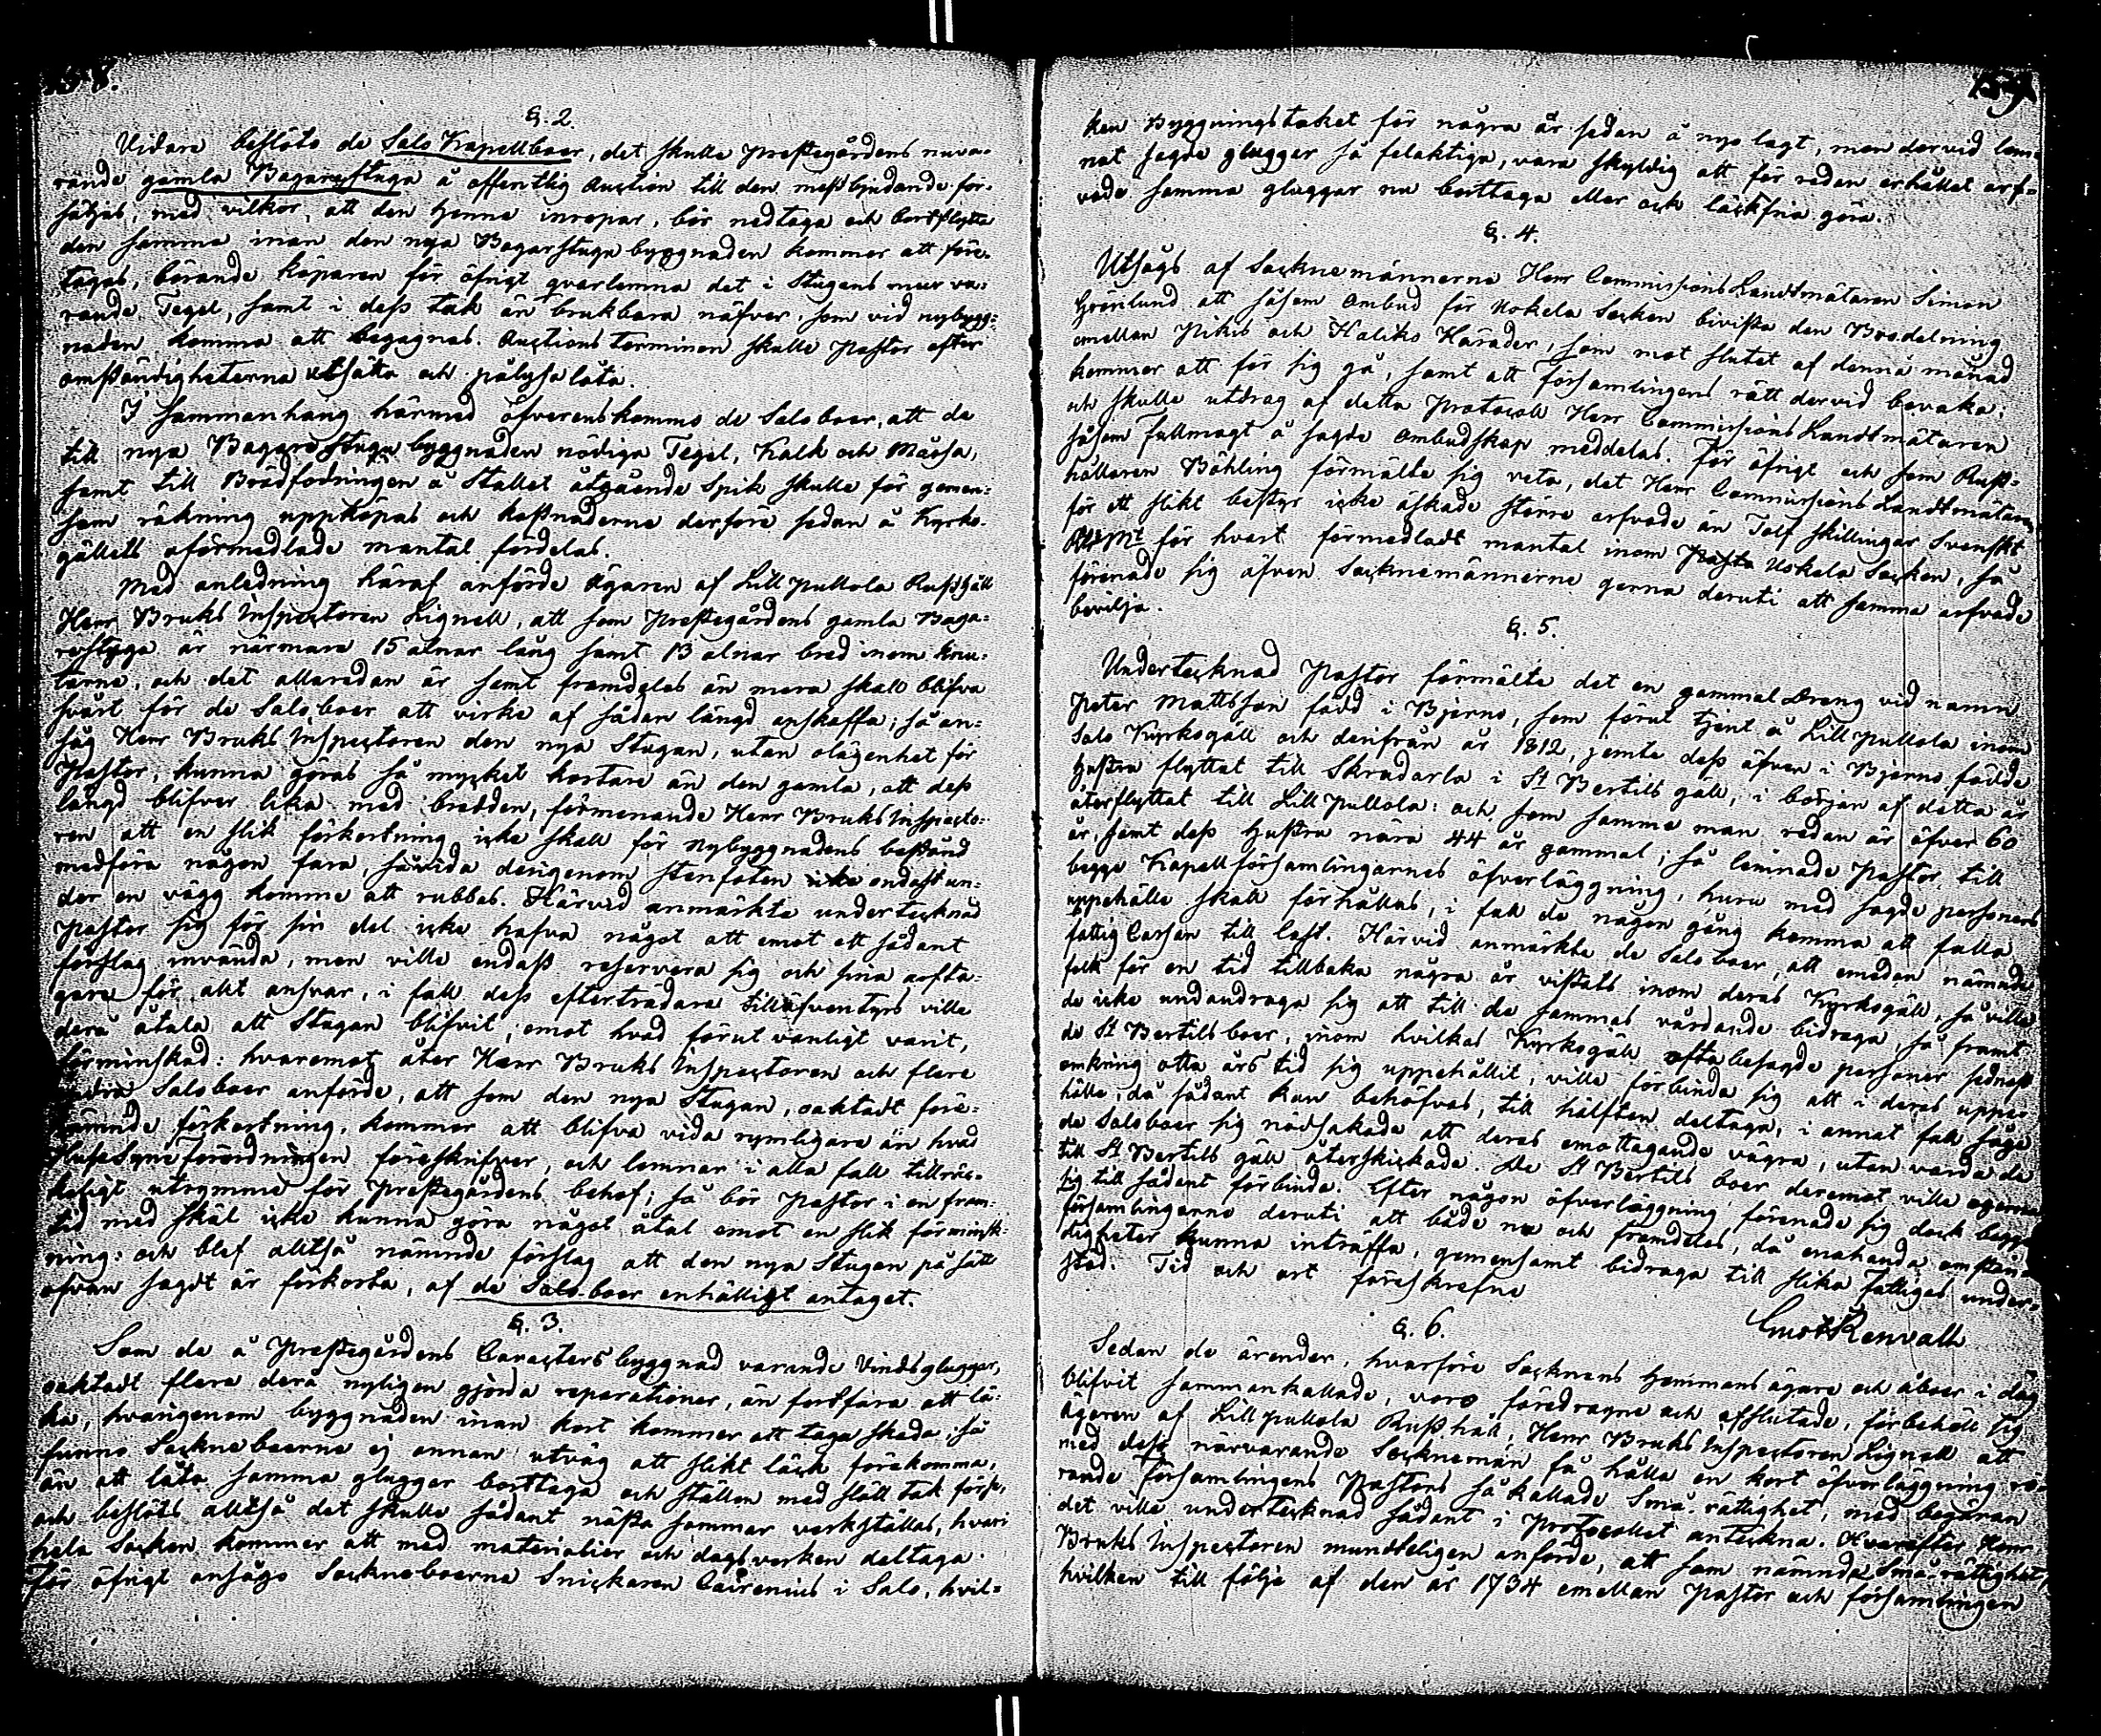 158.
§. 2.
Vidare beslöto de Salo Kapellboer, det skulle Prestegårdens nuva-
rande gamla Bagarestuga å offentlig Auction till den mest bjudande för-
säljas, med vilkor, att den henne inropar, bör nedtaga och bortflytta
den samma innan den nya Bagarstuga byggnaden kommer att före-
tagas, börande köparen för öfrigt qvarlemna det i Stugans mur va-
rande Tegel, samt i dess tak än brukbara näfver, som vid nybygg-
naden komma att begagnas. Auctions terminen skulle Pastor efter
omständigheterna utsätta och pålysa låta.
I sammanhang härmed öfverenskommo de Saloboer, att de
till nya Bagarestuga byggnaden nödiga Tegel, Kalck och Måssa,
samt till Brädfodningen å Stallet åtgående Spik skulle för gemen-
sam räkning uppköpas och kostnaderne derföre sedan å Kyrko-
gällets oförmedlade mantal fördelas.
Med anledning häraf anförde Ägaren af Lill Pullola Rusthåll
Herr Bruks Inspectoren Lignell, att som Prestegårdens gamla Baga-
restuga är närmare 15 alnar lång samt 13 alnar bred inom knu-
tarne, och det allaredan är samt framdeles än mera skall blifva
svårt för de Saloboer att virke af sådan längd anskaffa; så an-
såg Herr Bruks Inspectoren den nya Stugan, utan olägenhet för
Pastor, kunna göras så mycket kortare än den gamla, att dess
längd blifver lika med bredden, förmenande Herr Bruks Inspecto-
ren att en slik förkortning icke skall för Nybyggnadens bestånd
medföra någon fara, såvida derigenom stenfoten endast un-
der en vägg komme att rubbas. Härvid anmärkte undertecknad
Pastor sig för sin del icke hafva något att emot ett sådant
förslag invända, men ville endast reservera sig och sina arfta-
gare för allt ansvar, i fall dess efterträdare tilläfventyrs ville
derå åtala att Stugan blifvit, emot hvad förut vanligt varit,
förminskad: hvaremot åter Herr Bruks Inspectoren och flere
andra Saloboer anförde, att som den nya Stugan, oaktadt före-
nämnde förkortning, kommer att blifva vida rymligare än hvad
Husesyns Förordningen föreskrifver, och lemnar i alla fall tillräc-
keligt utrymme för Prestegårdens behof; så bör Pastor i en fram-
tid med skäl icke kunna göra något åtal emot en slik förminsk-
ning: och blef alltså nämnde förslag att den nya Stugan på sätt
ofvan sagdt är förkorta, af de Salo boer enhälligt antaget.
§. 3.
Som de å Prestegårdens Caracters byggnad varande Vindsgluggar,
oaktadt flera derå nyligen gjorda reparationer, än fortfara att lä-
ka, hvarigenom byggnaden inan kort kommer att taga skada; så
funno Sockneboerne ej annan utväg att slikt läck förekomma,
än att låta samma gluggar borttaga och ställen med slätt tak förse,
och beslöts alltså det skulle sådant nästa sommar verkställas, hvari
hela Socken kommer att med materialier och dagsverken deltaga.
För öfrigt ansågo Sockneboerna Snickaren Cairenius i Salo, hvil-
159.
ken Byggningstaket för några år sedan å nyo lagt, men dervid lem-
nat sagde gluggar så felaktiga, vara skyldig att för redan erhållet arf-
vode samma gluggar nu borttaga eller ock läckfria göra.
§. 4.
Utsågs af Socknemännerne Herr Commissions Landtmätaren Simon
Grönlund att såsom Ombud för Uskela Socken bivista den Brodelning
emellan Pikis och Haliko Härader, som mot slutet af denna månad
kommer att för sig gå, samt att församlingens rätt dervid bevaka;
och skulle utdrag af detta Protocoll Herr Commissions Landtmätaren
såsom fullmagt å sagde Ombudskap meddelas. För öfrigt och som Rust-
hållaren Böhling förmälte sig veta, det Herr Commissions Landtmätaren
för ett slikt bestyr icke äskade större arfvode än Tolf skillingar Svenskt
för hvart förmedladt mantal inom Uskela Socken, så
förenade sig äfven Socknemännerne gerna deruti att samma arfvode
bevilja.
§. 5.
Undertecknad Pastor förmälte det en gammal Dreng vid namn
Peter Mattsson född i Bjerno, som förut tjent å Lill Pullola inom
Salo Kyrkogäll och derifrån år 1812, jemte dess äfven i Bjerno födde
hustru flyttat till Skradarla i St Bertils gäll, i början af detta år
återflyttat till Lill Pullola: och som samme man redan är öfver 60
år, samt dess hustru nära 44 år gammal; så lemnade Pastor till
begge Kapellförsamlingarnes öfverläggning, huru med sagde personers
uppehälle skall förhållas, i fall de någon gång komma att falla
fattig Cassan till last. Härvid anmärkte de Saloboer, att emedan nämnde
folk för en tid tillbaka några år vistats inom deras Kyrkogäll, så ville
de icke undandraga sig att till de sammas vårdande bidraga, så framt
de St Bertilsboer, inom hvilkas Kyrkogäll oftabesagde personer sednast
omkring åtta års tid sig uppehållit, ville förbinda sig att i deras uppe-
hälle, då sådant kan behöfvas, till hälften deltaga, i annat fall sågo
de Saloboer sig nödsakade att deras emottagande vägra, utan vorde de
till St Bertils gäll återskickade. De St Bertils boer deremot ville ogerna
sig till sådant förbinda. Efter någon öfverläggning förenade sig dock begge
församlingarne deruti att både nu och framdeles, då enahanda omstän-
digheter kunna inträffa, gemensamt bidraga till slika fattigas under-
stöd. Tid och ort föreskrefne
Renvall
§. 6.
Sedan de ärenden, hvarföre Socknens Hemmans ägare och åboer i dag
blifvit sammankallade, voro föredragne och afslutade, förbehöll sig
Ägaren af Lill Pullola Rusthåll, Herr Bruks Inspectoren Lignell att
med dess närvarande Socknemän få hålla en kort öfverläggning rö-
rande Församlingens Pastors så kallade Små-rättighet, med begäran
det ville undertecknad sådant i Protocollet anteckna. Hvarefter Herr
Bruks Inspectoren mundteligen anförde, att som nämnda Små-rättighet,
hvilken till följe af den år 1734 emellan Pastor och församlingen